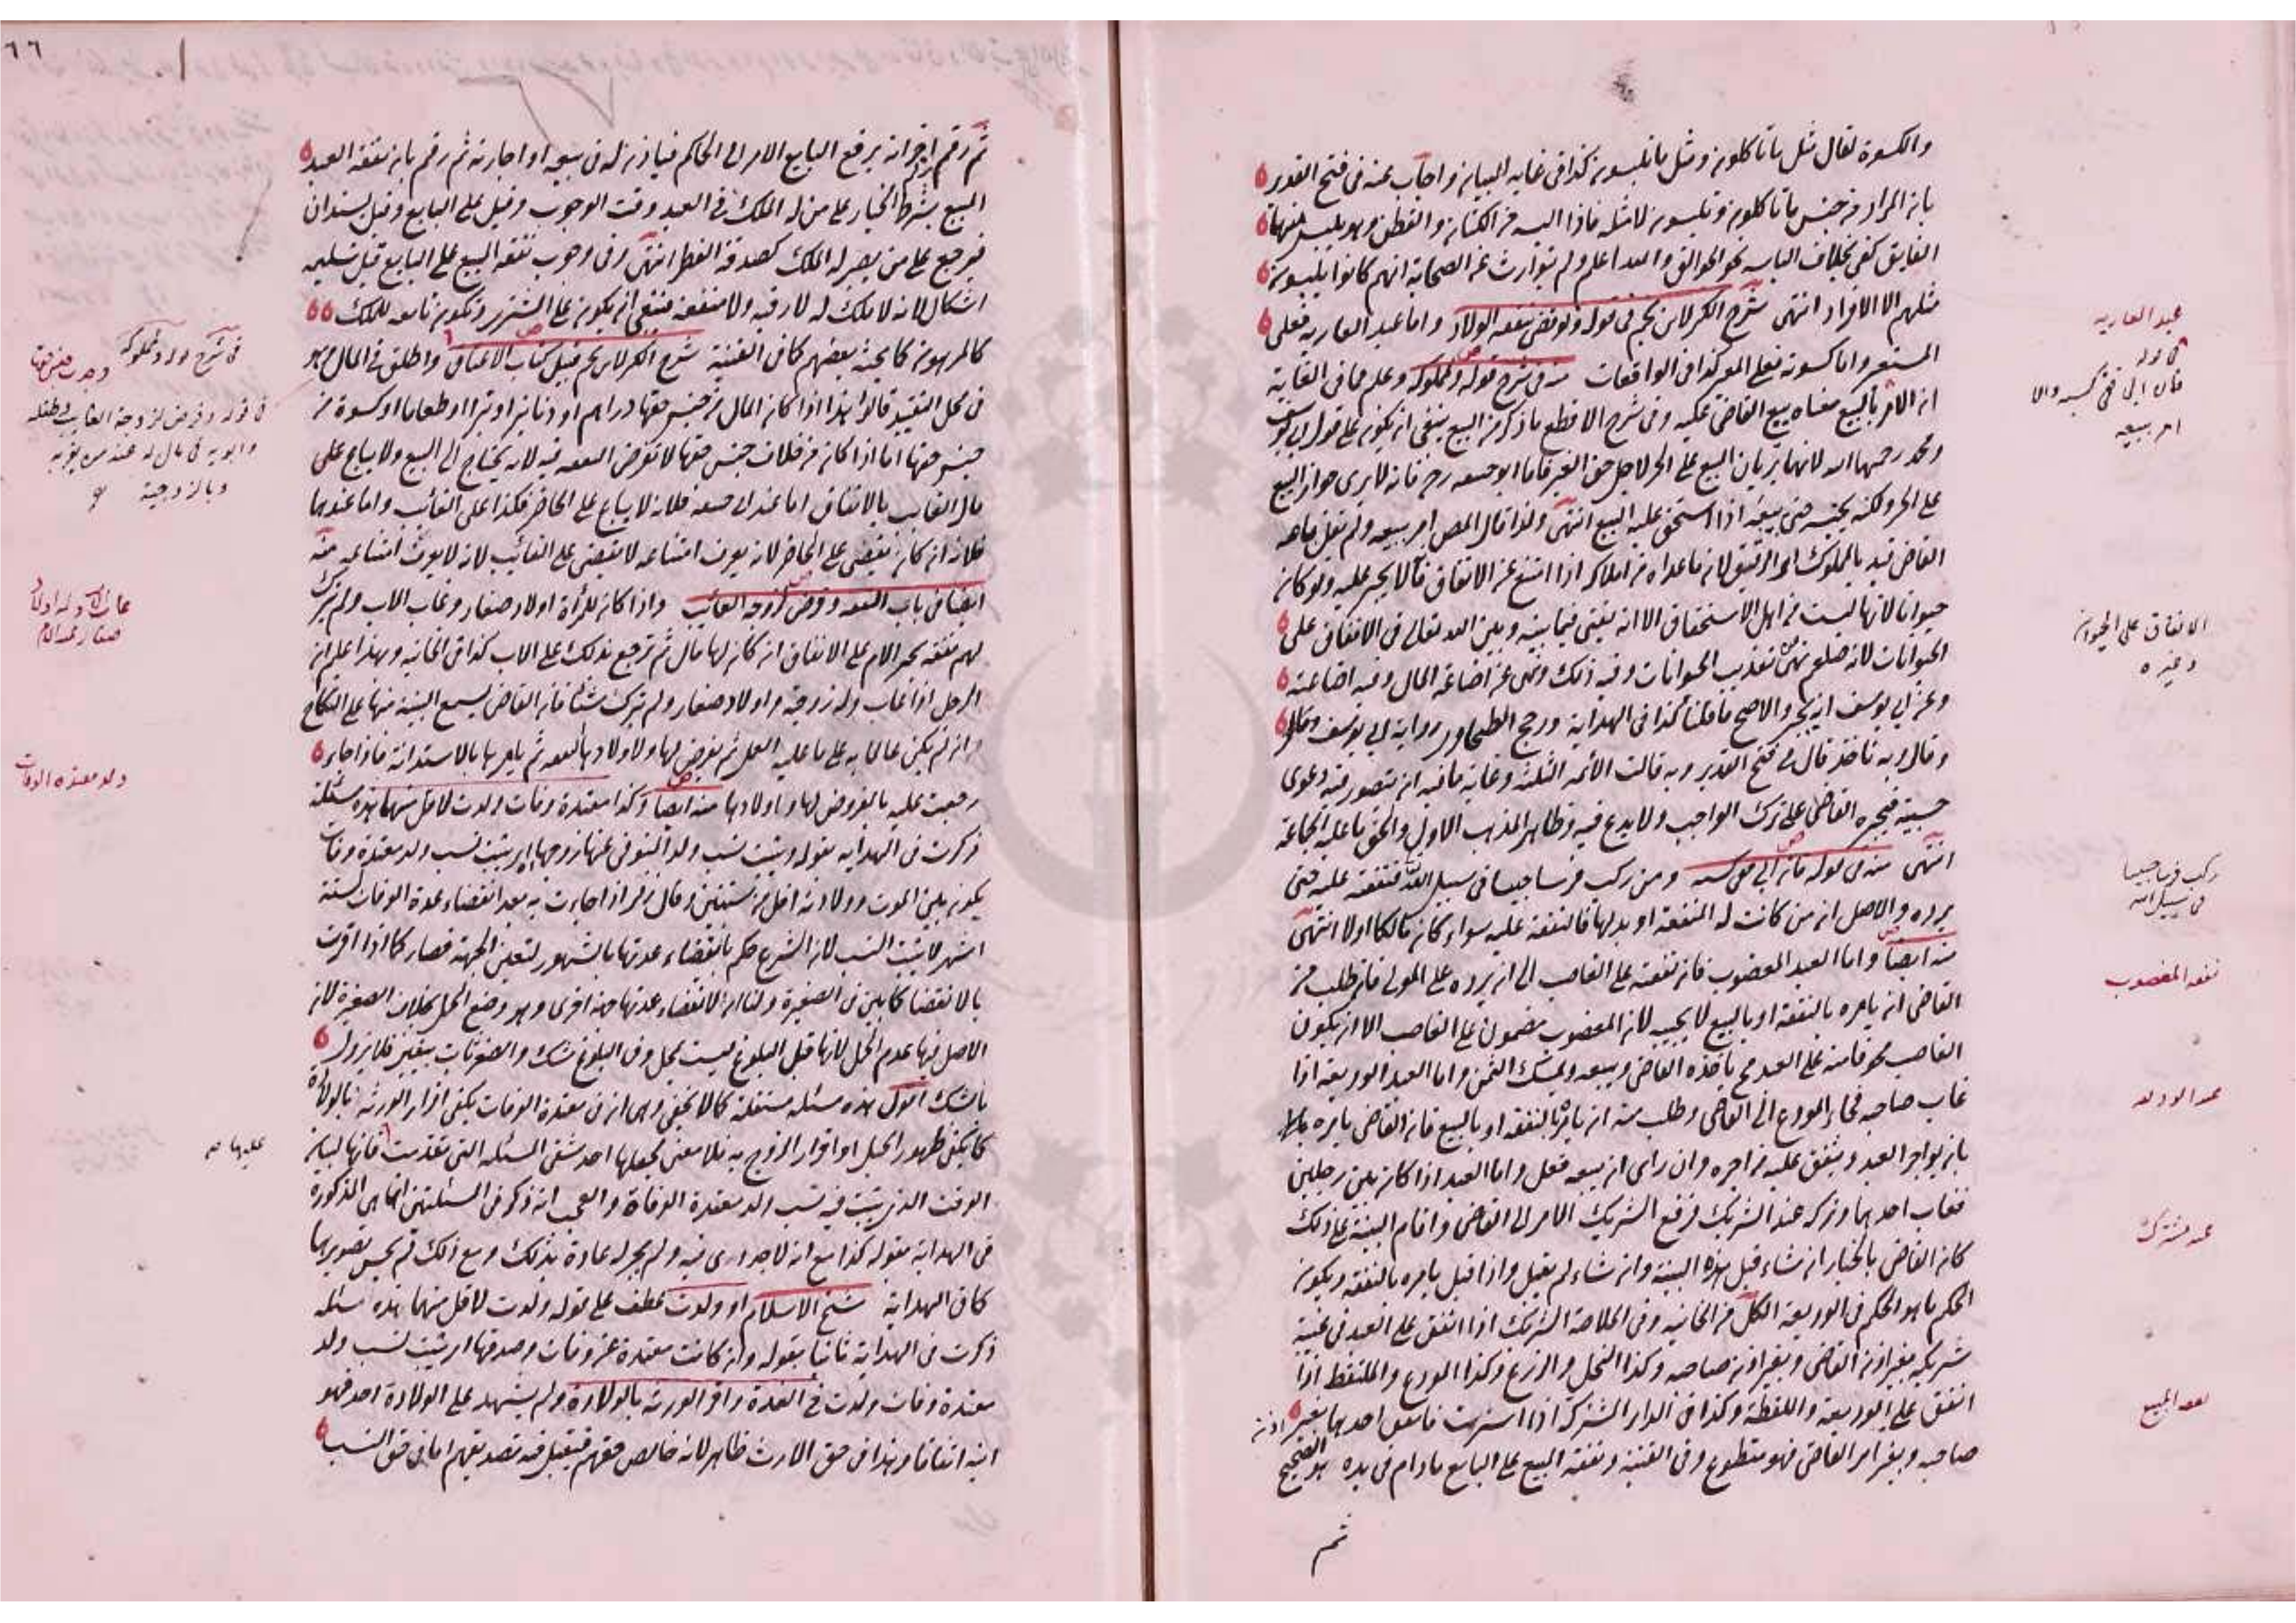 والكسوة تقال مثل ما تاكلون ومثل ما تلبسون كذا فى غاية البيان واجاب عنه فى فتح القدير
بان المراد من جنس ما تاكلون وتلبسون لا مثله فاذا البسه من الكتان والقطن وهو يلبس منهما
الفايق كفى بخلاف الباسه نحو الجوالق والله اعلم ولم يتوارث عن الصحابة انهم كانوا يلبسون
مثلهم الا الافراد انتهى شرح الكنز لابن نجيم فى قوله ولو قضى بنفقة الولاد واما عبد العارية فعلى
المستعير واما كسوته فعلى المعير كذا فى الواقعات منه فى شرح قوله ولمملوكه وعلم مما فى الغاية
ان الامر بالبيع معناه بيع القاضى عليه وفى شرح الاقطع ما ذكر من البيع ينبغى ان يكون على قول ابى يوسف
ومحمد رحمهما الله لانهما يريان البيع على الحر لاجل حق الغير فاما ابو حنيفه رح فانه لا يرى جواز البيع
على الحر ولكنه يحبسه حتى يبيعه اذا استحق عليه البيع انتهى ولذا قال المص امر ببيعه ولم يقل باعه
القاضى قيد بالمملوك اى الرقيق لان ما عداه من املاكه اذا امتنع عن الانفاق فانه لا يجبر عليه ولو كان
حيوانا لانها ليست من اهل الاستحقاق الا انه يفتى فيما بينه وبين الله تعالى فى الانفاق على
الحيوانات لانه صلعم نهى عن تعذيب الحيوانات وفيه ذلك ونهى عن اضاعة المال وفيه اضاعته
وعن ابى يوسف انه يجبر والاصح ما قلنا كذا فى الهداية ورجح الطحاوى رواية ابى يوسف
وقال وبه ناخذ قال فى فتح القدير وبه قالت الأئمه الثلثة وغاية ما فيه ان يتصور فيه دعوى
حسبة فيجبره القاضى على ترك الواجب ولا بدع فيه وظاهر المذهب الاول والحق ما عليه الجماعة
انتهى منه فى قوله فان ابى فى كسبه ومن ركب فرسا حبيسا فى سبيل الله فنفقته عليه حتى
يرده والاصل ان من كانت له المنفعة او بدلها فالنفقة عليه سواء كان مالكا اولا انتهى
منه ايضا واما العبد المغصوب فان نفقته على الغاصب الى ان يرده على المولى فان طلب من
القاضى ان يامره بالنفقة او بالبيع لا يجيبه لان المغصوب مضمون على الغاصب الا ان يكون
الغاصب مخوفا منه على العبد فح ياخذه القاضى ويبيعه ويمسك الثمن واما العبد الوديعه اذا
غاب صاحبه فجاء المودع الى القاضى وطلب منه ان يامره بالنفقه او بالبيع فان القاضى يامره
بان يواجر العبد وينفق عليه من اجره وان راى ان يبيعه فعل واما العبد اذا كان بين رجلين
فغاب احدهما وتركه عند الشريك فرفع الشريك الامر الى القاضى واقام البينة على ذلك
كان القاضى بالخيار ان شاء قبل هذه البينة وان شاء لم يقبل واذا قبل يامره بالنفقه ويكون
الحكم ما هو الحكم فى الوديعة الكل من الخانيه وفى الخلاصة الشريك اذا انفق على العبد فى غيبة
شريكه بغير اذن القاضى وبغير اذن صاحبه وكذا النخل والزرع وكذا المودع والملتقط اذا
انفق على الوديعه واللقطة وكذا فى الدار المشتركه اذا استرمت فانفق احدهما بغير اذن
صاحبه وبغير امر القاضى فهو متطوع وفى القنية ونفقة المبيع على البايع ما دام فى يده هو الصحيح
ثم
عبد العارية
فى قوله
فان ابى ففى كسبه والا
امر ببيعه
الانفاق على الحيوان
وغيره
ركب فرسا حبيسا
فى سبيل الله
نفقه المغصوب
عبد الوديعه
عبد مشترك
نفقه المبيع
٦٦
ثم رقم اخر انه يرفع البايع الامر الى الحاكم فياذن له فى بيعه او اجارته ثم رقم بان نفقة العبد
المبيع بشرط الخيار على من له الملك فى العبد وقت الوجوب وقيل على البايع وقيل يستدان
فيرجع على من يصير له الملك كصدقة الفطر انتهى وفى وجوب نفقة المبيع على البايع قبل تسليمه
اشكال لانه لا ملك له لا رقبه ولا منفعه فينبغى ان يكون على المشترى وتكون تابعه للملك
كالمرهون كما بحثه بعضهم كما فى القنية شرح الكنز لابن نجيم قبيل كتاب الاعتاق واطلق فى المال وهو
فى محل التقييد قالوا هذا اذا كان المال من جنس حقها دراهم او دنانير او تبرا او طعاما او كسوة من
جنس حقها اما اذا كان من خلاف جنس حقها لا تفرض النفقه فيه لانه يحتاج الى البيع ولا يباع على
مال الغايب بالاتفاق اما عند ابى حنيفه فلانه لا يباع على الحاضر فكذا على الغائب واما عندهما
فلانه ان كان يقضى على الحاضر لانه يعرف امتناعه لا يقضى على الغائب لانه لا يعرف امتناعه منه
ايضا فى باب النفقه وفرض لزوجه الغائب واذا كان للمرأة اولاد صغار وغاب الاب ولم يترك
لهم نفقه يجبر الام على الانفاق ان كان لها مال ثم ترجع بذلك على الاب كذا فى الخانيه وبهذا علم ان
الرجل اذا غاب وله زوجة واولاد صغار ولم يترك شيئا فان القاضى يسمع البينة منها على النكاح
وان لم يكن عالما به على ما عليه العمل ثم يفرض لها ولاولادها نفقه ثم يامرها بالاستدانة فاذا جاء
رجعت عليه بالمفروض لها ولاولادها منه ايضا وكذا معتدة وفات ولدت لاقل منهما هذه مسئلة
ذكرت فى الهدايه بقوله ويثبت نسب ولد المتوفى عنها زوجها اى يثبت نسب ولد معتدة وفات
يكون بين الموت وولادته اقل من سنتين وقال زفر اذا جاءت به بعد انقضاء عدة الوفات لستة
اشهر لا يثبت النسب لان الشرع حكم بانقضاء عدتها بالشهور لتعين الجهة فصار كما اذا اقرت
بالانقضا كما بين فى الصغيرة ولنا ان لانقضاء عدتها جهة اخرى وهو وضع الحمل بخلاف الصغيرة لان
الاصل فيها عدم الحمل لانها قبل البلوغ ليست بمحل وفى البلوغ شك والصغر ثابت بيقين فلا يزول
بالشك اقول هذه مسئله مستقلة كما لا يخفى وهى ان فى معتدة الوفات يكفى اقرار الورثه بالولادة
كما يكفى ظهور الحبل او اقرار الزوج به فلا معنى لجعلها احد شقى المسئله التى تقدمت فانها لبيان
الوقت الذى يثبت فيه نسب ولد معتدة الوفاة والعجب انه ذكر فى المسئلتين انها هى المذكورة
فى الهداية بقوله كذا مع انه لا جدوى فيه ولم يجر له عادة بذلك ومع ذلك لم يحسن تصويرها
كما فى الهداية شيخ الاسلام او ولدت عطف على قوله ولدت لاقل منهما هذه مسئله
ذكرت فى الهداية ثانيا بقوله وان كانت معتدة عن وفات وصدقها اى يثبت نسب ولد
معتدة وفات ولدت فى العدة واقر الورثه بالولادة ولم يشهد على الولادة احد فهو
ابنه اتفاقا وهذا فى حق الارث ظاهر لانه خالص حقهم فيقبل فيه تصديقهم اما فى حق النسب
فى شرح قوله ولمملوكه
وفرض لزوجة الغايب وطفله
وابويه فى مال له عند من يقر به
وبالزوجية
غاب وله اولاد
صغار عند الام
ولد معتده الوفات
عليها